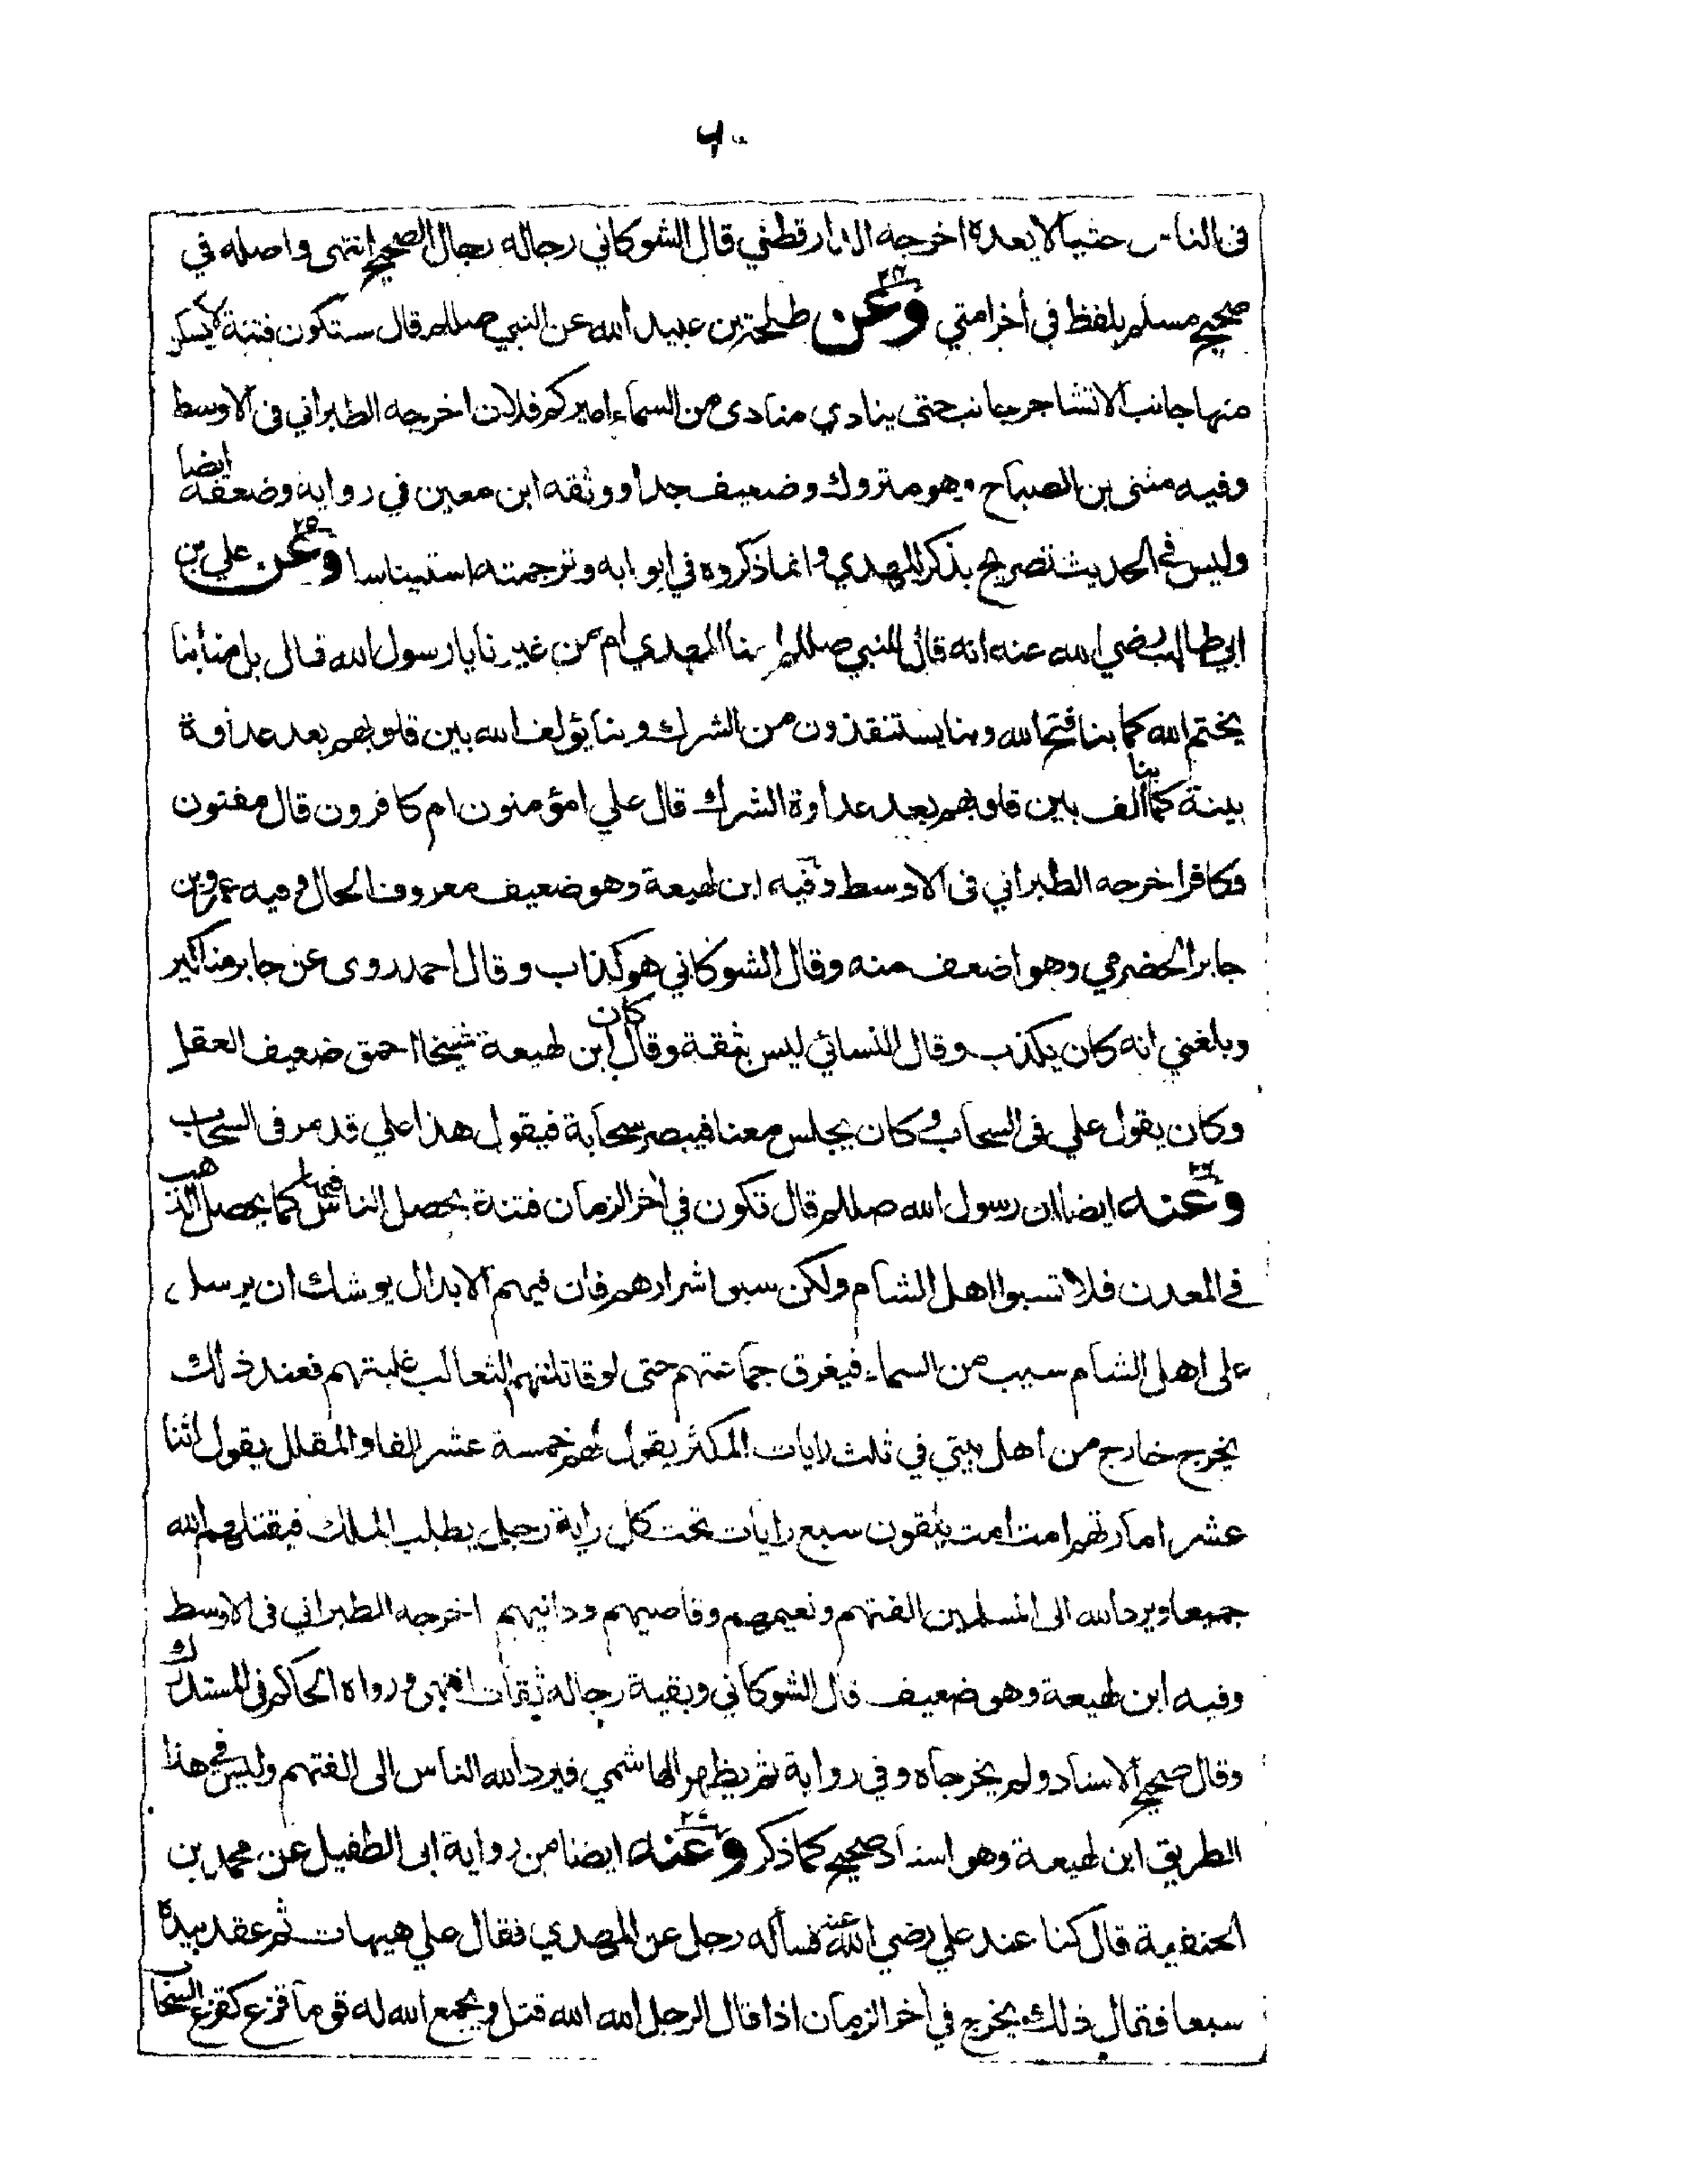 ٦٠
فى الناس حثيا لا يعده اخرجه الدارقطني قال الشوكاني رجاله رجال الصحيح انتهى واصله في
صحيح مسلم بلفظ في أخر امتي وعن ٢٤ طلحة بن عبيد الله عن النبي صللم قال ستكون فتنة لا يسكن
منها جانب الا تشاجر جانب حتى ينادي منادى من السماء اميركم فلان اخرجه الطبراني فى الاوسط
وفيه مثنى بن الصباح وهو متروك وضعيف جدا ووثقه ابن معين في رواية وضعفه ايضا
وليس في الحديث تصريح بذكر المهدي وانما ذكروه في ابوابه وترجمته استيناسا وعن ٢٥ علي بن
ابي طالب رضي الله عنه انه قال للنبي صللم امنا المهدي ام من غيرنا يا رسول الله قال بل منا بنا
يختم الله كما بنا فتح الله وبنا يستنقذون من الشرك وبنا يؤلف الله بين قلوبهم بعد عداوة
بينة كما بنا ألف بين قلوبهم بعد عداوة الشرك قال علي امؤمنون ام كافرون قال مفتون
وكافر اخرجه الطبراني فى الاوسط وفيه ابن لهيعة وهو ضعيف معروف الحال وفيه عمرو بن
جابر الحضرمي وهو اضعف منه وقال الشوكاني هو كذاب وقال احمد روى عن جابر مناكير
وبلغني انه كان يكذب وقال النسائي ليس بثقة وقال كان ابن لهيعة شيخا احمق ضعيف العقل
وكان يقول علي فى السحاب وكان يجلس معنا فيبصر سحابة فيقول هذا علي قد مر فى السحاب
وعنه ٢٦ ايضا ان رسول الله صللم قال تكون في أخر الزمان فتنة يحصل الناس فيها كما يحصل الذهب
في المعدن فلا تسبوا اهل الشام ولكن سبوا شرارهم فان فيهم الابدال يوشك ان يرسل
على اهل الشام سبب من السماء فيغرق جماعتهم حتى لو قاتلتهم الثعالب غلبتهم فعند ذلك
يخرج خارج من اهل بيتي في ثلث رايات المكثر يقول لهم خمسة عشر الفا والمقلل يقول اثنا
عشر امارتهم امت امت يلقون سبع رايات تحت كل راية رجل يطلب الملك فيقتلهم الله
جميعا ويرد الله الى المسلمين الفتهم ونعيمهم وقاصيهم ودانيهم اخرجه الطبراني فى الاوسط
وفيه ابن لهيعة وهو ضعيف قال الشوكاني وبقية رجاله ثقات انتهى ورواه الحاكم فى المستدرك
وقال صحيح الاسناد ولم يخرجاه وفي رواية ثم يظهر الهاشمي فيرد الله الناس الى الفتهم وليس في هذا
الطريق ابن لهيعة وهو اسناد صحيح كما ذكر وعنه ٢٧ ايضا من رواية ابى الطفيل عن محمد بن
الحنفية قال كنا عند علي رضي الله عنه فسأله رجل عن المهدي فقال علي هيهات ثم عقد بيده
سبعا فقال ذلك يخرج في أخر الزمان اذا قال الرجل الله الله قتل ويجمع الله له قوما قزع كقزع السحاب